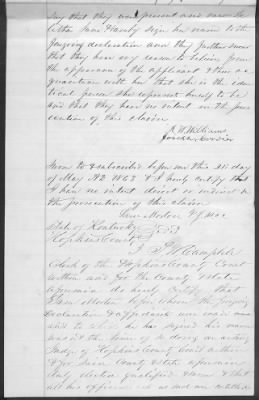 say that they were present and saw
sign her name to the
foregoing declaration and they further swear
that they have every reason to believe from
the appearance of the applicant & their ac
quaintance with her that she is the iden
tical person she represents herself to be
and that they have no interest in the prose
cution of this claim
Sworn to & subscribed before me this day
of May AD 1863 & I hereby certify that
I have no interest direct or indirect in
the prosecution of this claim
State of Kentucky
Hopkins County
Clerk of the Hopkins County Court
within and for the County & State
aforesaid do hereby certify that
before whom the foregoing
declaration & affidavit were made
and to which he has signed his name
was at the time of so doing an acting
Judge of Hopkins County Court within
& for said County & State aforesaid
duly elected qualified & sworn & that
all his official acts as such are entitled